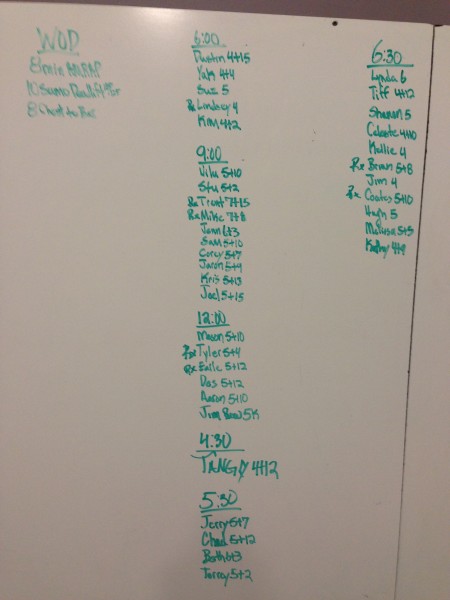 WOD
8min AMRAP
10 Sumo Deadlift
8 Chest to Bar
6:00
Dustin 4+15
Yuki 4+4
Suz 5
Rx Lindsey 4
Kim 4+2
9:00
5+10
Stu 5+2
Rx Trent 7+15
Rx Mike 7+8
Jenn 6+3
Sam 5+10
Corey 5+7
Jaron 5+9
Kris 5+13
Joel 5+15
12:00
Mason 5+10
Rx Tyler 5+4
Rx 5+12
Das 5+12
Aaron 5+10
Jim 5K
4:30
TANG 4+12
5:30
Jerry 5+7
Chad 5+12
Beth 6+3
Torrey 5+2
6:30
Lynda 6
Tiff 4+12
Sharon 5
Celeste 4+10
Kellie 4
Rx Brian 5+8
Jim 4
Rx Coates 5+10
Hugh 5
Melissa 5+5
Kathy 4+9